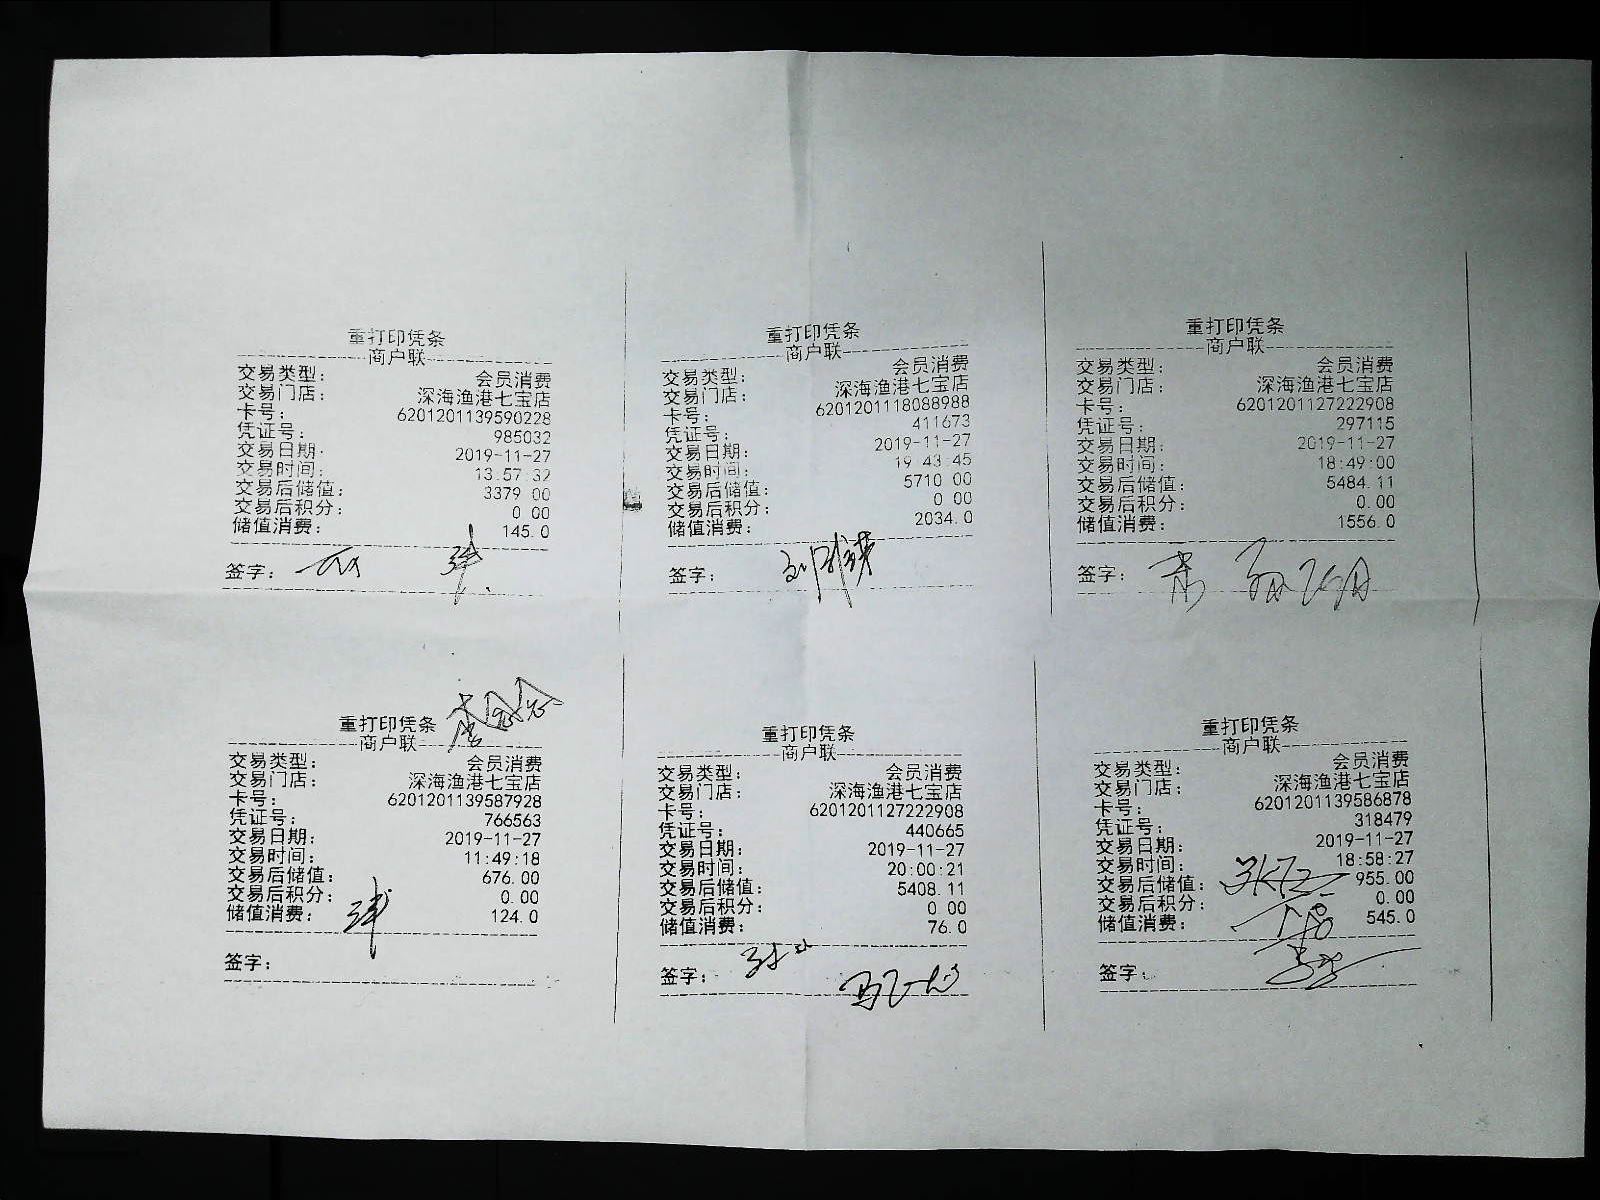 重打印凭条
商户联
交易类型: 会员消费
交易门店: 深海渔港七宝店
卡号: 6201201139590228
凭证号: 985032
交易日期: 2019-11-27
交易时间: 13:57:32
交易后储值: 3379.00
交易后积分: 0.00
储值消费: 145.0
签字:
重打印凭条
商户联
交易类型: 会员消费
交易门店: 深海渔港七宝店
卡号: 6201201118088988
凭证号: 411673
交易日期: 2019-11-27
交易时间: 19:43:45
交易后储值: 5710.00
交易后积分: 0.00
储值消费: 2034.0
签字:
重打印凭条
商户联
交易类型: 会员消费
交易门店: 深海渔港七宝店
卡号: 6201201127222908
凭证号: 297115
交易日期: 2019-11-27
交易时间: 18:49:00
交易后储值: 5484.11
交易后积分: 0.00
储值消费: 1556.0
签字:
重打印凭条
商户联
交易类型: 会员消费
交易门店: 深海渔港七宝店
卡号: 6201201139587928
凭证号: 766563
交易日期: 2019-11-27
交易时间: 11:49:18
交易后储值: 676.00
交易后积分: 0.00
储值消费: 124.0
签字:
重打印凭条
商户联
交易类型: 会员消费
交易门店: 深海渔港七宝店
卡号: 6201201127222908
凭证号: 440665
交易日期: 2019-11-27
交易时间: 20:00:21
交易后储值: 5408.11
交易后积分: 0.00
储值消费: 76.0
签字:
重打印凭条
商户联
交易类型: 会员消费
交易门店: 深海渔港七宝店
卡号: 6201201139586878
凭证号: 318479
交易日期: 2019-11-27
交易时间: 18:58:27
交易后储值: 955.00
交易后积分: 0.00
储值消费: 545.0
签字: